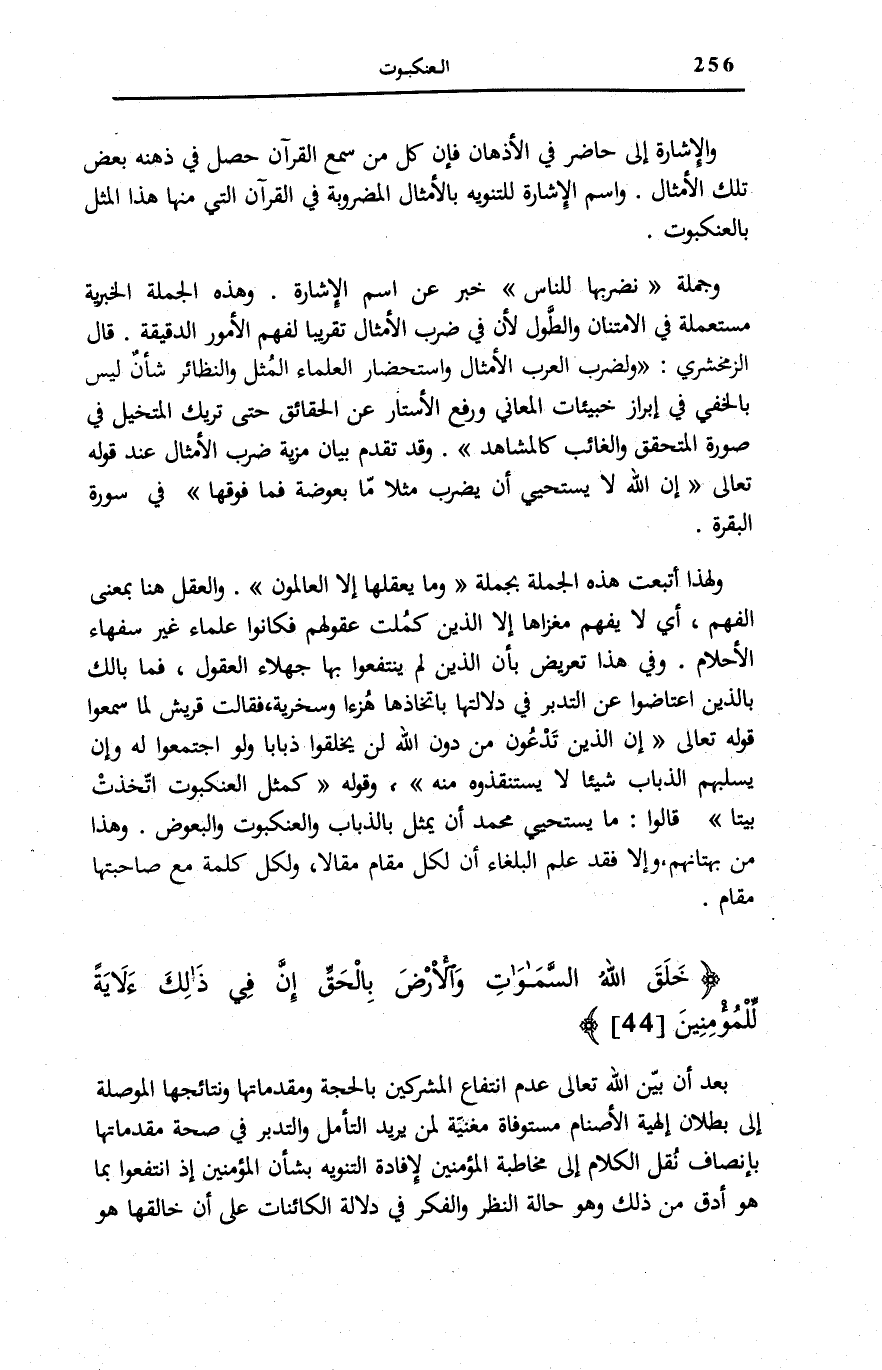 256
العنكبوت
والإشارة إلى حاضر في الأذهان فإن كل من سمع القرآن حصل في ذهنه بعض
تلك الأمثال . واسم الإشارة للتنويه بالأمثال المضروبة في القرآن التي منها هذا المثل
بالعنكبوت .
وجملة « نضربها للناس » خبر عن اسم الإشارة . وهذه الجملة الخبرية
مستعملة في الامتنان والطَّول لأن في ضرب الأمثال تقريبا لفهم الأمور الدقيقة . قال
الزمخشري : «ولضرب العرب الأمثال واستحضار العلماء المُثل والنظائر شأنٌ ليس
بالخفي في إبراز خبيئات المعاني ورفع الأستار عن الحقائق حتى تريك المتخيل في
صورة المتحقق والغائب كالمشاهد » . وقد تقدم بيان مزية ضرب الأمثال عند قوله
تعالى « إن الله لا يستحيي أن يضرب مثلا مّا بعوضة فما فوقها » في سورة
البقرة .
ولهذا أتبعت هذه الجملة بجملة « وما يعقلها إلا العالمون » . والعقل هنا بمعنى
الفهم ، أي لا يفهم مغزاها إلا الذين كمُلت عقولهم فكانوا علماء غير سفهاء
الأحلام . وفي هذا تعريض بأن الذين لم ينتفعوا بها جهلاء العقول ، فما بالك
بالذين اعتاضوا عن التدبر في دلالتها باتخاذها هُزءا وسخرية،فقالت قريش لما سمعوا
قوله تعالى « إن الذين تَدْعُون من دون الله لن يخلقوا ذبابا ولو اجتمعوا له وإن
يسلبهم الذباب شيئا لا يستنقذوه منه » ، وقوله « كمثل العنكبوت اتّخذتْ
بيتا » قالوا : ما يستحيي محمد أن يمثل بالذباب والعنكبوت والبعوض . وهذا
من بهتانهم،وإلا فقد علم البلغاء أن لكل مقام مقالا، ولكل كلمة مع صاحبتها
مقام .
﴿ خَلَقَ اللهُ السَّمَـٰوَٰتِ وَٱلْأَرْضَ بِالْحَقِّ إِنَّ فِي ذَٰلِكَ ءَلَايَةً
لِّلْمُؤْمِنِينَ [44] ﴾
بعد أن بيّن الله تعالى عدم انتفاع المشركين بالحجة ومقدماتها ونتائجها الموصلة
إلى بطلان إلهية الأصنام مستوفاة مغنيَة لمن يريد التأمل والتدبر في صحة مقدماتها
بإنصاف نُقل الكلام إلى مخاطبة المؤمنين لإفادة التنويه بشأن المؤمنين إذ انتفعوا بما
هو أدق من ذلك وهو حالة النظر والفكر في دلالة الكائنات على أن خالقها هو